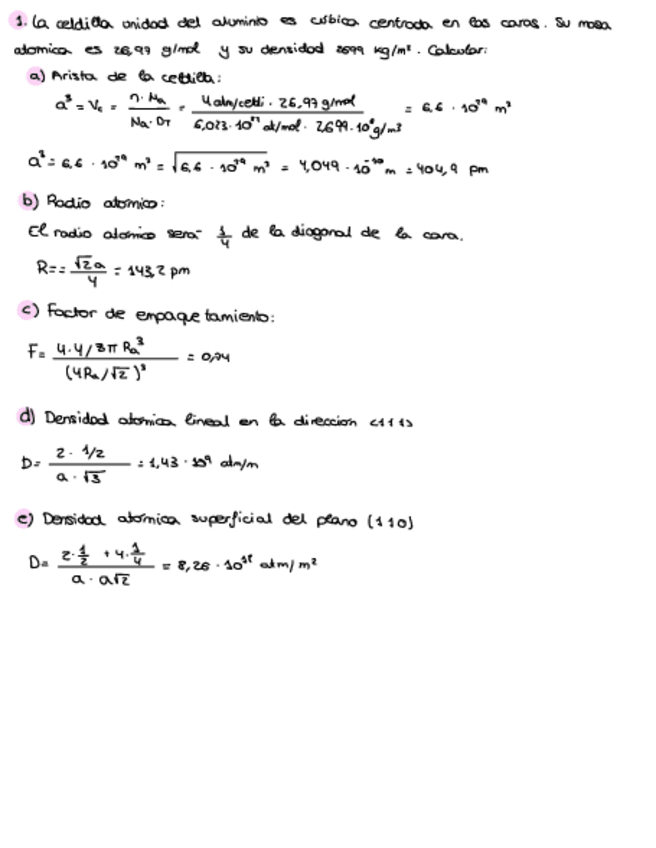 1. La celdilla unidad del aluminio es cúbica centrada en las caras. Su masa
atomica es 26,97 g/mol y su densidad 2699 kg/m³. Calcular:
a) Arista de la celdilla:
a³ = Vc = n · Ma / Na · DT = 4 atm/celdi · 26,97 g/mol / 6,023 · 10²³ at/mol · 2,699 · 10⁶ g/m³ = 6,6 · 10²⁹ m³
a³ = 6,6 · 10²⁹ m³ = √6,6 · 10²⁹ m³ = 4,049 · 10⁻¹⁰ m = 404,9 pm
b) Radio atomico:
El radio atomico sera 1/4 de la diagonal de la cara.
R = = √2a / 4 = 143,2 pm
c) Factor de empaquetamiento:
F = 4 · 4/3 π Ra³ / (4Ra/√2)³ = 0,74
d) Densidad atomica lineal en la direccion <111>
D = 2 · 1/2 / a · √3 = 1,43 · 10⁹ atm/m
e) Densidad atomica superficial del plano (110)
D = 2 · 1/2 + 4 · 1/4 / a · a√2 = 8,26 · 10¹⁸ atm/m²